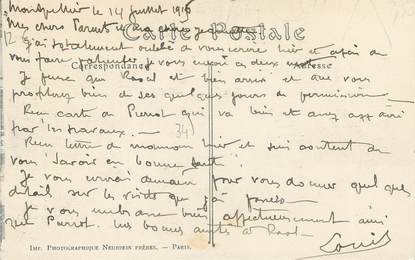 Montpellier le 14 juillet 1915
Carte Postale
Mes chers Parents
J'ai totalement oublié de vous écrire hier et afin de
me faire pardonner je vous envoie ces deux
Correspondance
Adresse
Je pense que est bien arrivé et que vous
profitez bien de ses quelques jours de permission
Reçu carte de Pierrot qui va bien et assez
par les travaux.
34
Reçu lettre de maman hier et suis content de
vous savoir en bonne santé
Je vous écrirai demain pour vous donner quelques
détails sur les visites que j'ai
Je vous embrasse bien affectueusement ainsi
que Pierrot. bonnes amitiés à
Louis
Imp. Photographique Neurdein Frères. — Paris.